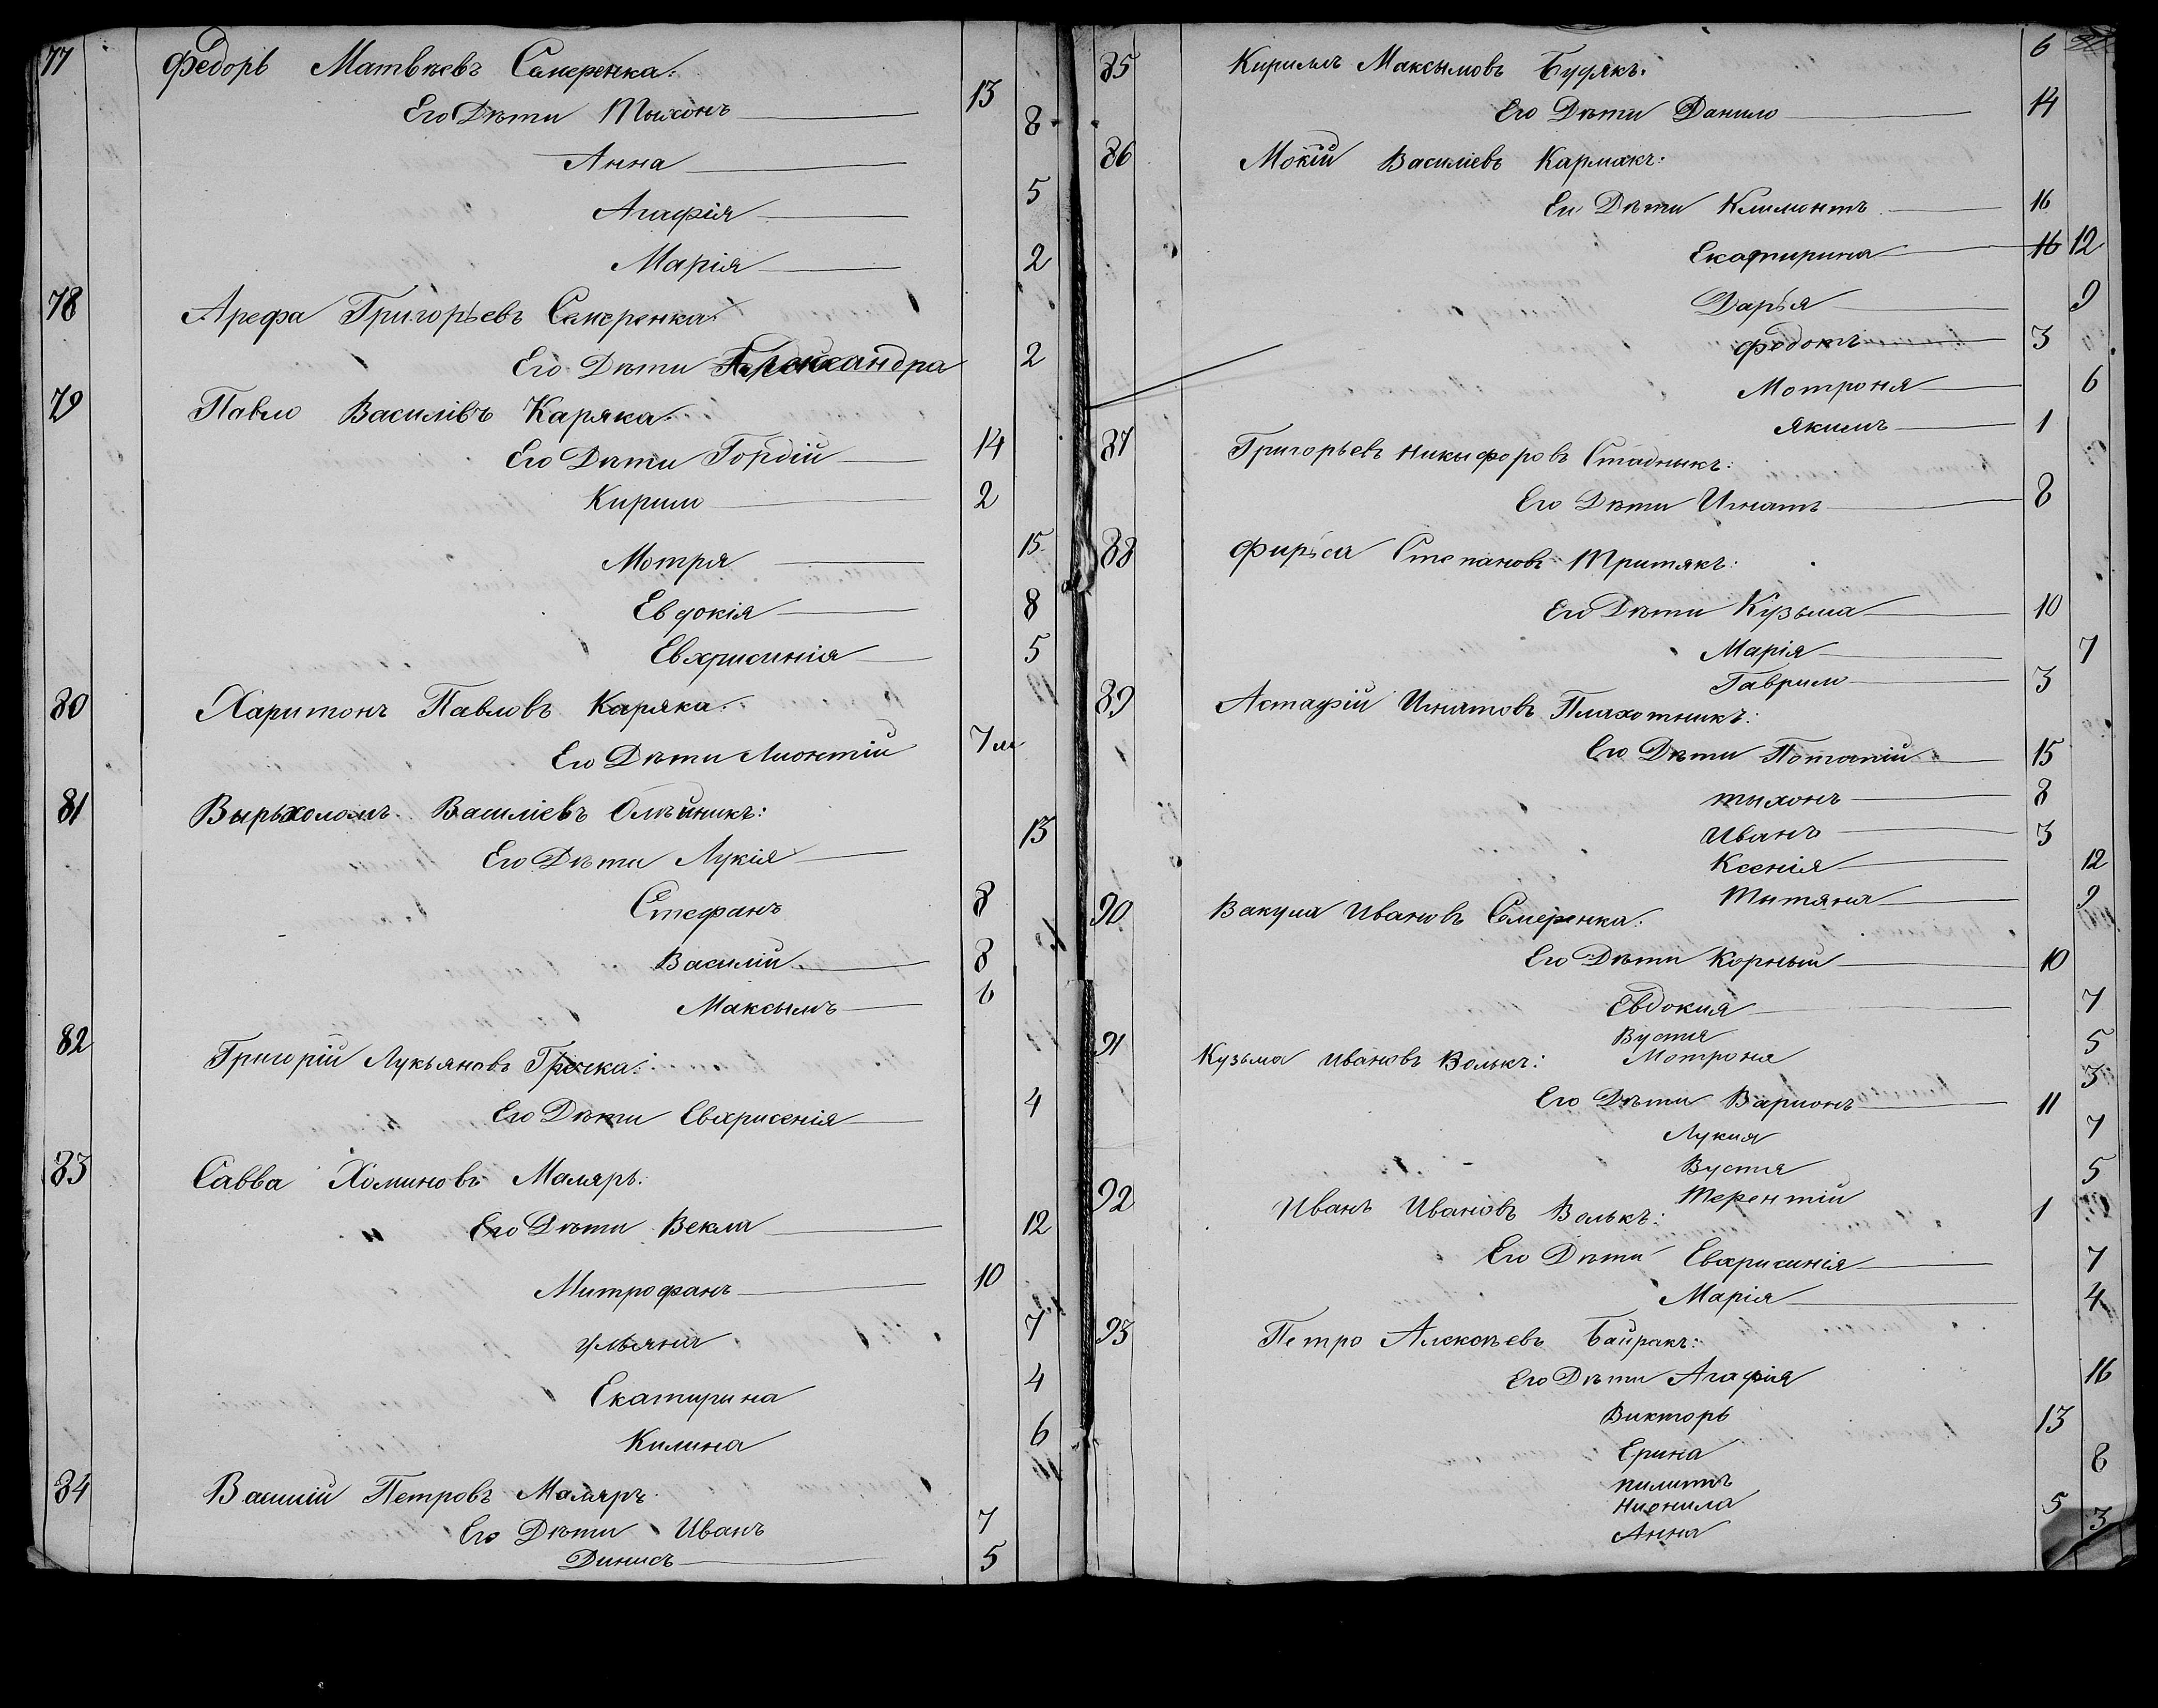 77 Федоръ Матвѣевъ Самеренка:
Его Дѣти Тыхонъ 13
Анна 8
Агафія 5
Марія 2
78 Арефа Григорьевъ Самеренка:
Его Дѣти Александра 2
79 Павло Василівъ Каряка:
Его Дѣти Гордій 14
Кирило 2
Мотря 15
Евдокія 8
Евхрисинія 5
80 Харитонъ Павловъ Каряка:
Его Дѣти Лионтій 7 м
81 Василіевъ Олѣйникъ:
Его Дѣти Лукія 13
Стефанъ 8
Василій 8
Максымъ 6
82 Григорій Лукьяновъ Грочка:
Его Дѣти Евхрисенія 4
83 Савва Хоминовъ Маляръ:
Его Дѣти Векла 12
Митрофанъ 10
Ульяна 7
Екатирина 4
Килина 6
84 Василій Петровъ Маляръ
Его Дѣти Иванъ 7
Динисъ 5
6
85 Кирилъ Максымовъ Будякъ:
Его Дѣти Данило 14
86 Мокій Василіевъ Кармакъ:
Ег Дѣти Климонтъ 16
Екатирина 16 12
Дарья 9
Федотъ 3
Мотроня 6
Якимъ 1
87 Григорьевъ Никыфоровъ Стадныкъ:
Его Дѣти Игнатъ 8
88 Фирса Степановъ Тритякъ:
Его Дѣти Кузьма 10
Марія 7
Гаврило 3
89 Астафій Игнатовъ Плахотникъ:
Его Дѣти Потапій 15
Тыхонъ 8
Иванъ 3
Ксенія 12
Тытяна 9
90 Вакула Ивановъ Самеренка:
Его Дѣти Корный 10
Евдокия 7
Вустя 5
Мотроня 3
91 Кузьма Ивановъ Волыкъ:
Его Дѣти Варионъ 11
Лукия 7
Вустя 5
Терентій 1
92 Иванъ Ивановъ Волыкъ:
Его Дѣти Евхрисинія 7
Марія 4
93 Петро Алексѣевъ Байракъ:
Его Дѣти Агафія 16
Викторъ 13
Ерина 8
Пилипъ 5
Нионила 3
Анна